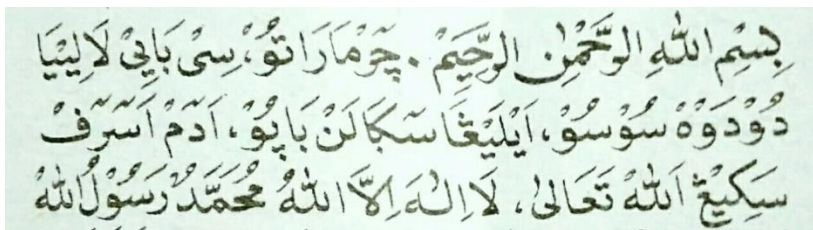 بِسْمِ اللهِ الرَّحْمٰنِ الرَّحِيْمِ . چَرْمَارَاتُوْ، سِىْ بَايِيْ لَالِيْيَا
دُوْدَوْهْ سُوْسُوْ، اَيْلِيْڠَا سَكَالَنْ بَاپُوْ، اَدَمْ اَسْرَفْ
سَكِيْڠْ اَللهْ تَعَالىٰ، لَا اِلٰهَ اِلَّا اللهُ مُحَمَّدٌ رَسُوْلُ اللهْ